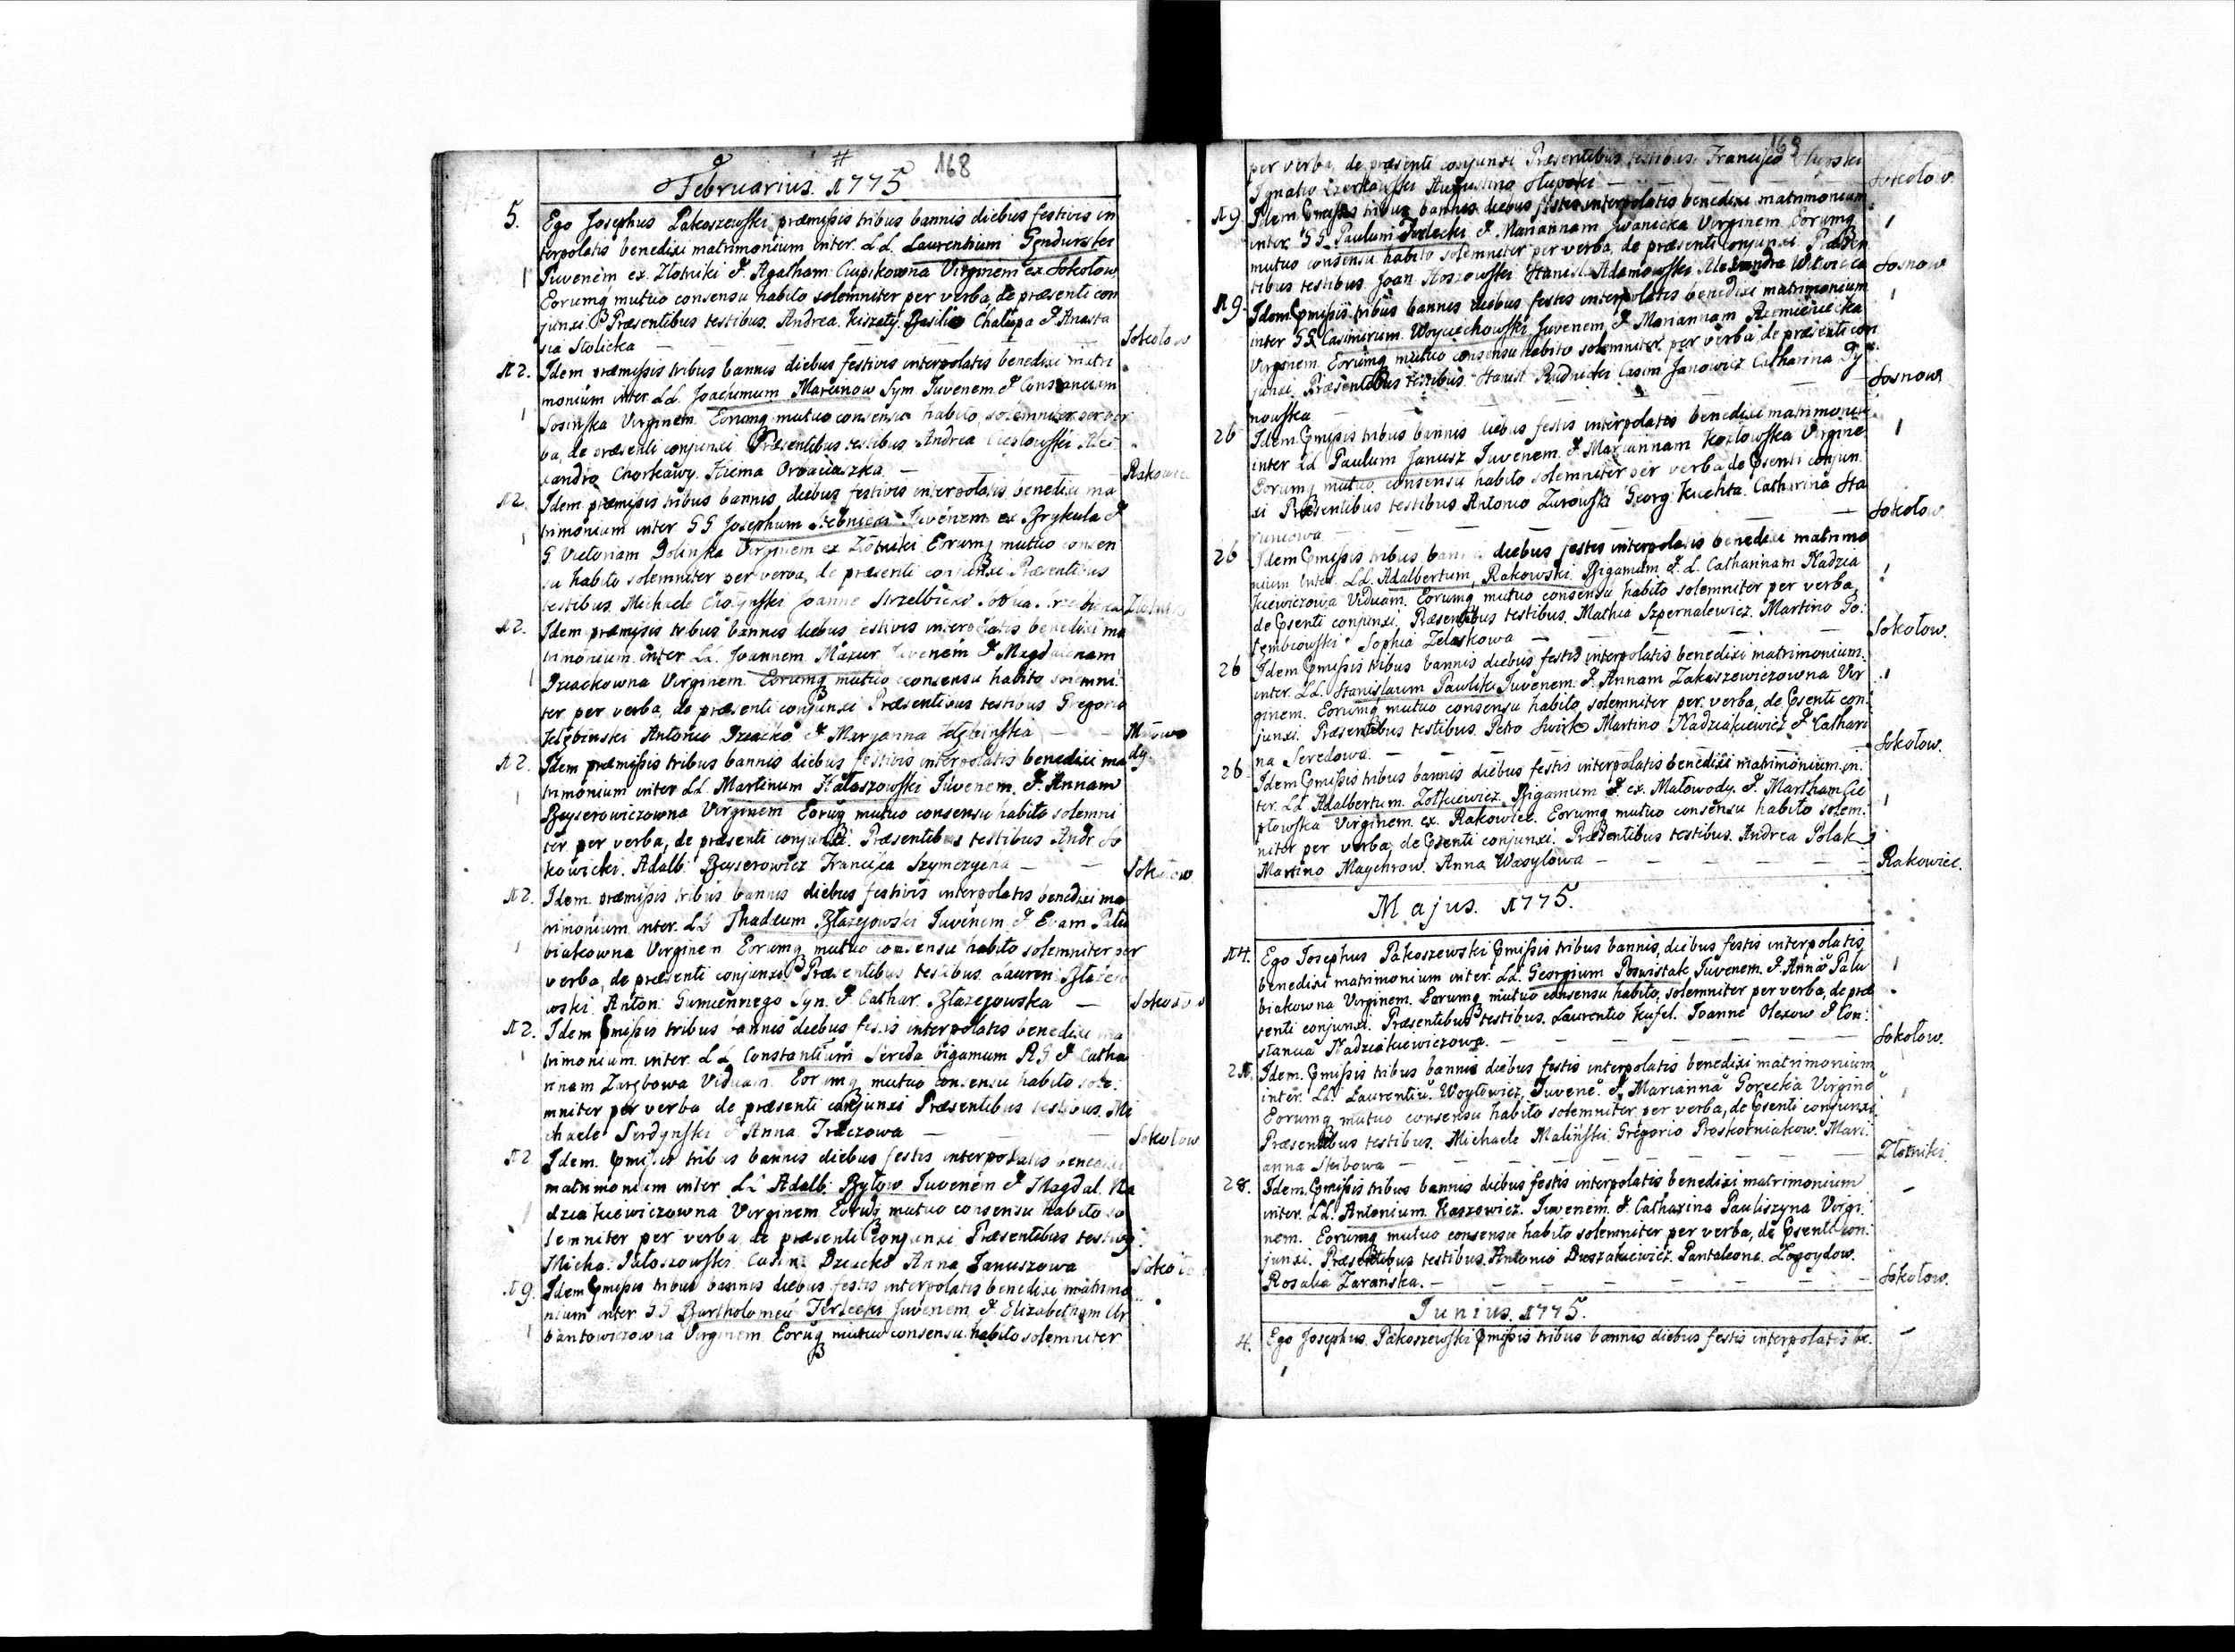 # 168
Februarius. 1775
5. Ego Josephus Pakoszewski præmissis tribus bannis diebus festivis in
terpolatis benedixi matrimonium inter LL Laurentium
Juvenem ex Złotniki & Agatham Ciupikowna Virginem ex Sokołow
Eorumq mutuo consensu habito solemniter per verba, de præsenti con
junxi. Præsentibus testibus. Andrea Basilio Chalupa & Anasta
sia Stolicka — Sokołow
12. Idem præmissis tribus bannis diebus festivis interpolatis benedixi matri
monium inter LL Joachimum Marunow Sym Juvenem & Constanciam
Sosinska Virginem Eorumq mutuo consensu habito solemniter per ver
ba, de præsenti conjunxi Præsentibus testibus Andrea Cieplowski Alex
andro Chorkawy — Rakowiec
12. Idem præmissis tribus bannis diebus festivis interpolatis benedixi ma
trimonium inter GG Josephum Stebnicki Juvenem ex Brykula &
G Victoriam Dolinska Virginem ex Złotniki Eorumq mutuo consen
su habito solemniter per verba, de præsenti conjunxi Præsentibus
testibus Michaele Joanne Strzelbicki Złotniki
12. Idem præmissis tribus bannis diebus festivis interpolatis benedixi ma
trimonium inter LL Joannem Mazur Juvenem & Magdalenam
Dziackowna Virginem Eorumq mutuo consensu habito solemni
ter per verba, de præsenti conjunxi Præsentibus testibus Gregorio
Antonio Dziacko & Maryanna — Małowo
dy
12. Idem præmissis tribus bannis diebus festivis interpolatis benedixi ma
trimonium inter LL Martinum Hałaszowski Juvenem & Annam
Beyserowiczowna Virginem Eoruq mutuo consensu habito solemni
ter per verba, de præsenti conjunxi. Præsentibus testibus Andr. So
kowicki. Adalb. Beyserowicz Francisca Szymczycha — Sokołow
12. Idem præmissis tribus bannis diebus festivis interpolatis benedixi ma
trimonium inter LL Thadeum Błazejowski Juvenem & Evam Palu
biakowna Virginem Eorumq mutuo consensu habito solemniter per
verba, de præsenti conjunxi Præsentibus testibus Lauren Błażejo
wski Anton. Gumiennego Syn. & Cathar. Błazejowska — Sokołow
12. Idem pmissis tribus bannis diebus festis interpolatis benedixi ma
trimonium inter LL Constantium Sereda bigamum RG & Catha
rinam Zarębowa Viduam Eorumq mutuo consensu habito sole
mniter per verba de præsenti conjunxi Præsentibus testibus Mi
chaele Serdynski & Anna Traczowa — Sokołow
12 Idem pmissis tribus bannis diebus festis interpolatis benedixi
matrimonium inter LL Adalb. Bylow Juvenem & Magdal. Na
dziakiewiczowna Virginem Eoruq mutuo consensu habito so
lemniter per verba de præsenti conjunxi Præsentibus testibus
Micha. Pałoszowski Casim. Dziacko Anna Januszowa Sokołow
19. Idem pmissis tribus bannis diebus festis interpolatis benedixi matrimo
nium inter GG Bartholomeu Terlecki Juvenem & Elizabetham Ur
bantowiczowna Virginem Eoruq mutuo consensu habito solemniter
169
per verba, de præsenti conjunxi Præsentibus testibus Francisco
Ignatio Augustino Słupski — Sokołow.
19. Idem pmissis tribus bannis diebus festis interpolatis benedixi matrimonium
inter GG Paulum Terlecki & Mariannam Iwanicka Virginem Eorumq
mutuo consensu habito solemniter per verba, de præsenti conjunxi Præsen
tibus testibus Joan. Stanisl. Adamowski Alexandra Witwicka Sosnow
19. Idem pmissis tribus bannis diebus festis interpolatis benedixi matrimonium
inter GG Casimirum Woyciechowski Juvenem & Mariannam
Virginem Eorumq mutuo consensu habito solemniter per verba de præsenti con
junxi. Præsentibus testibus Stanisl Rudnicki Casim Janowicz Catharina Ty
nowska — Sosnow
26 Idem pmissis tribus bannis diebus festis interpolatis benedixi matrimoniu
inter LL Paulum Janusz Juvenem & Mariannam Kozłowska Virgine
Eorumq mutuo consensu habito solemniter per verba de psenti conjun
xi Præsentibus testibus Antonio Zurowski Georg. Kuchta Catharina Sta
runiowa — Sokołow.
26 Idem pmissis tribus bannis diebus festis interpolatis benedixi matrimo
nium inter LL Adalbertum Rakowski Bigamum & L. Catharinam Nadzia
kiewiczowa Viduam. Eorumq mutuo consensu habito solemniter per verba,
de psenti conjunxi. Præsentibus testibus. Mathia Szpernalewicz. Martino Go
łembiowski Sophia Zelaskowa — Sokołow.
26 Idem pmissis tribus bannis diebus festis interpolatis benedixi matrimonium.
inter LL. Stanislaum Pawliki Juvenem & Annam Zakaszewiczowna Vir
ginem. Eorumq mutuo consensu habito, solemniter per verba, de psenti con
junxi. Præsentibus testibus. Petro Swirk Martino Nadziakiewicz & Cathari
na Seredowa. — Sokołow.
26. Idem pmissis tribus bannis diebus festis interpolatis benedixi matrimonium in
ter LL Adalbertum Zołkiewicz Bigamum & ex. Małowody. & Martham Cie
płowska Virginem ex. Rakowiec. Eorumq mutuo consensu habito solem
niter per verba, de psenti conjunxi. Præsentibus testibus. Andrea Polak
Martino Maychrow. Anna Wasylowa — Rakowiec.
Majus. 1775.
14. Ego Josephus Pakoszewski pmissis tribus bannis, diebus festis interpolatis
benedixi matrimonium inter LL. Georgium Poswistak Juvenem & Annā Palu
biakowna Virginem. Eorumq mutuo consensu habito, solemniter per verba, de præ
senti conjunxi. Præsentibus testibus. Laurentio Kufel. Joanne Olexow & Con
stancia Nadziakiewiczowa. — Sokołow.
21. Idem pmissis tribus bannis diebus festis interpolatis benedixi matrimonium
inter LL Laurentiū Woytowicz, Juvenē & Mariannā Gorecka Virgine
Eorumq mutuo consensu habito solemniter per verba, de psenti conjunxi.
Præsentibus testibus. Michaele Malinski Gregorio Proskorniakow. Mari
anna Skibowa — Złotniki.
28. Idem pmissis tribus bannis diebus festis interpolatis benedixi matrimonium
inter LL. Antonium Kaszowicz. Juvenem & Catharina Pauliszyna Virgi
nem. Eorumq mutuo consensu habito solemniter per verba, de psenti con
junxi. Præsentibus testibus. Antonio Doszakiewicz. Pantaleone Zogoydow.
Rosalia Zaranska. — Sokołow.
Junius. 1775.
4. Ego Josephus Pakoszewski pmissis tribus bannis diebus festis interpolatis be